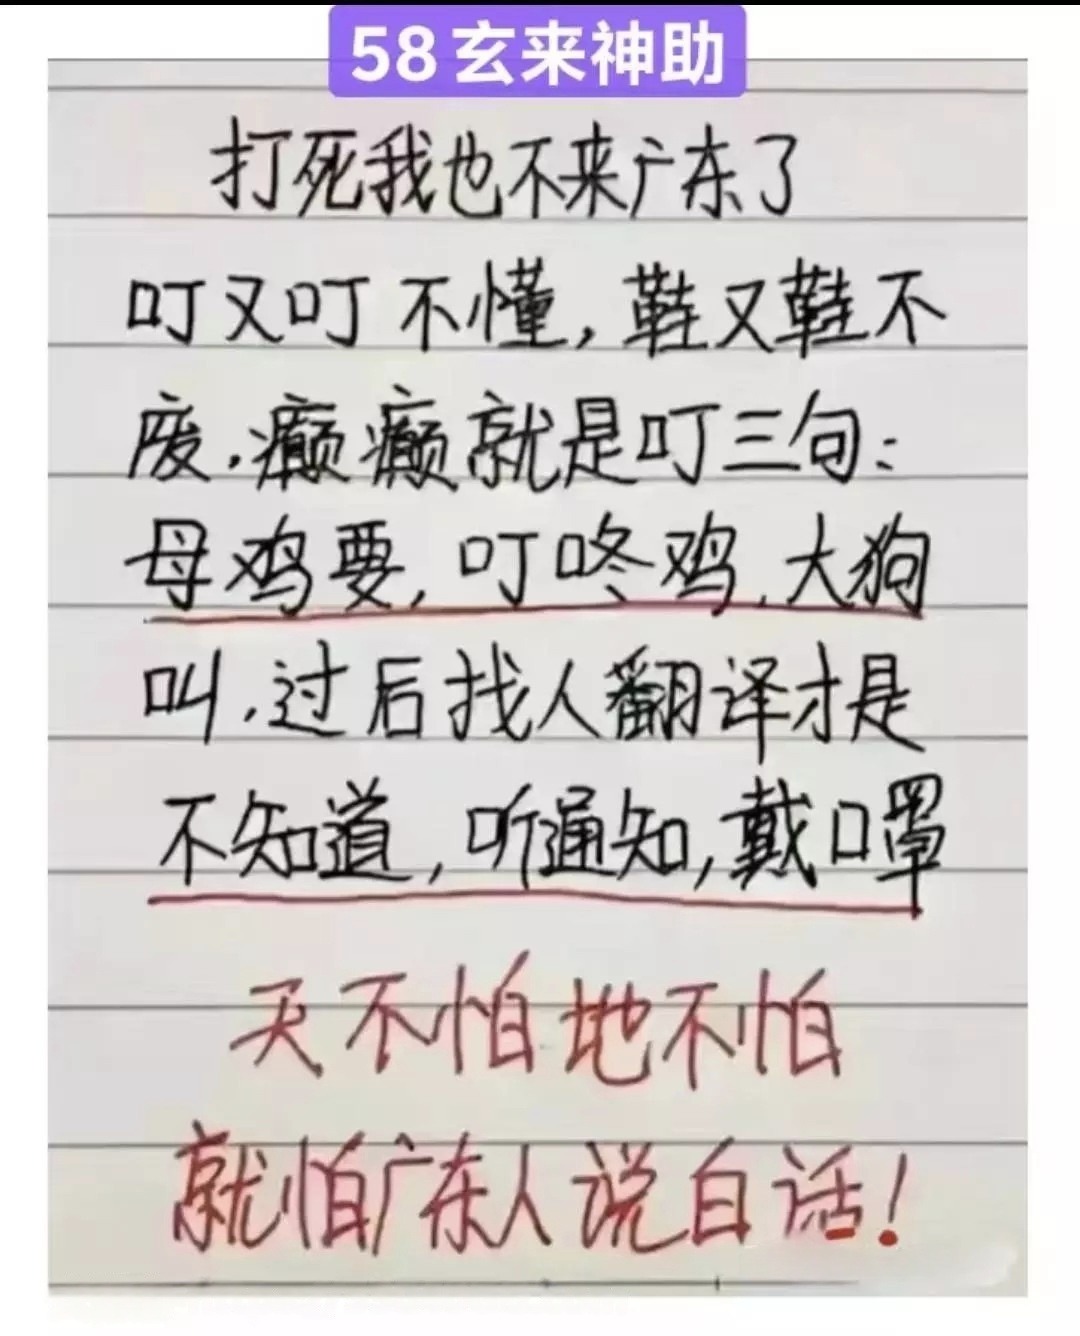 58玄来神助
打死我也不来广东了
叮又叮不懂,鞋又鞋不
废.癫癫就是叮三句:
母鸡要,叮咚鸡.大狗
叫.过后找人翻译才是
不知道,听通知,戴口罩
天不怕地不怕
就怕广东人说白话!